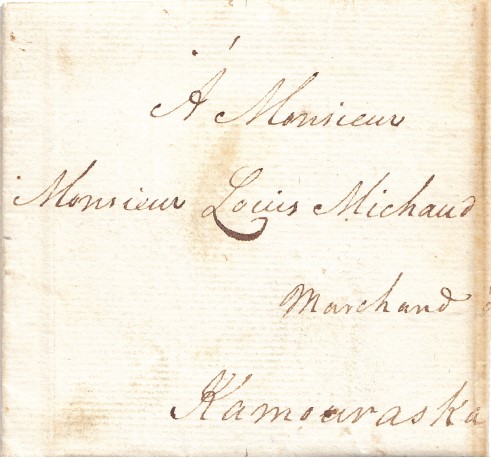 À Monsieur
Monsieur Louis Michaud
Marchand à
Kamouraska